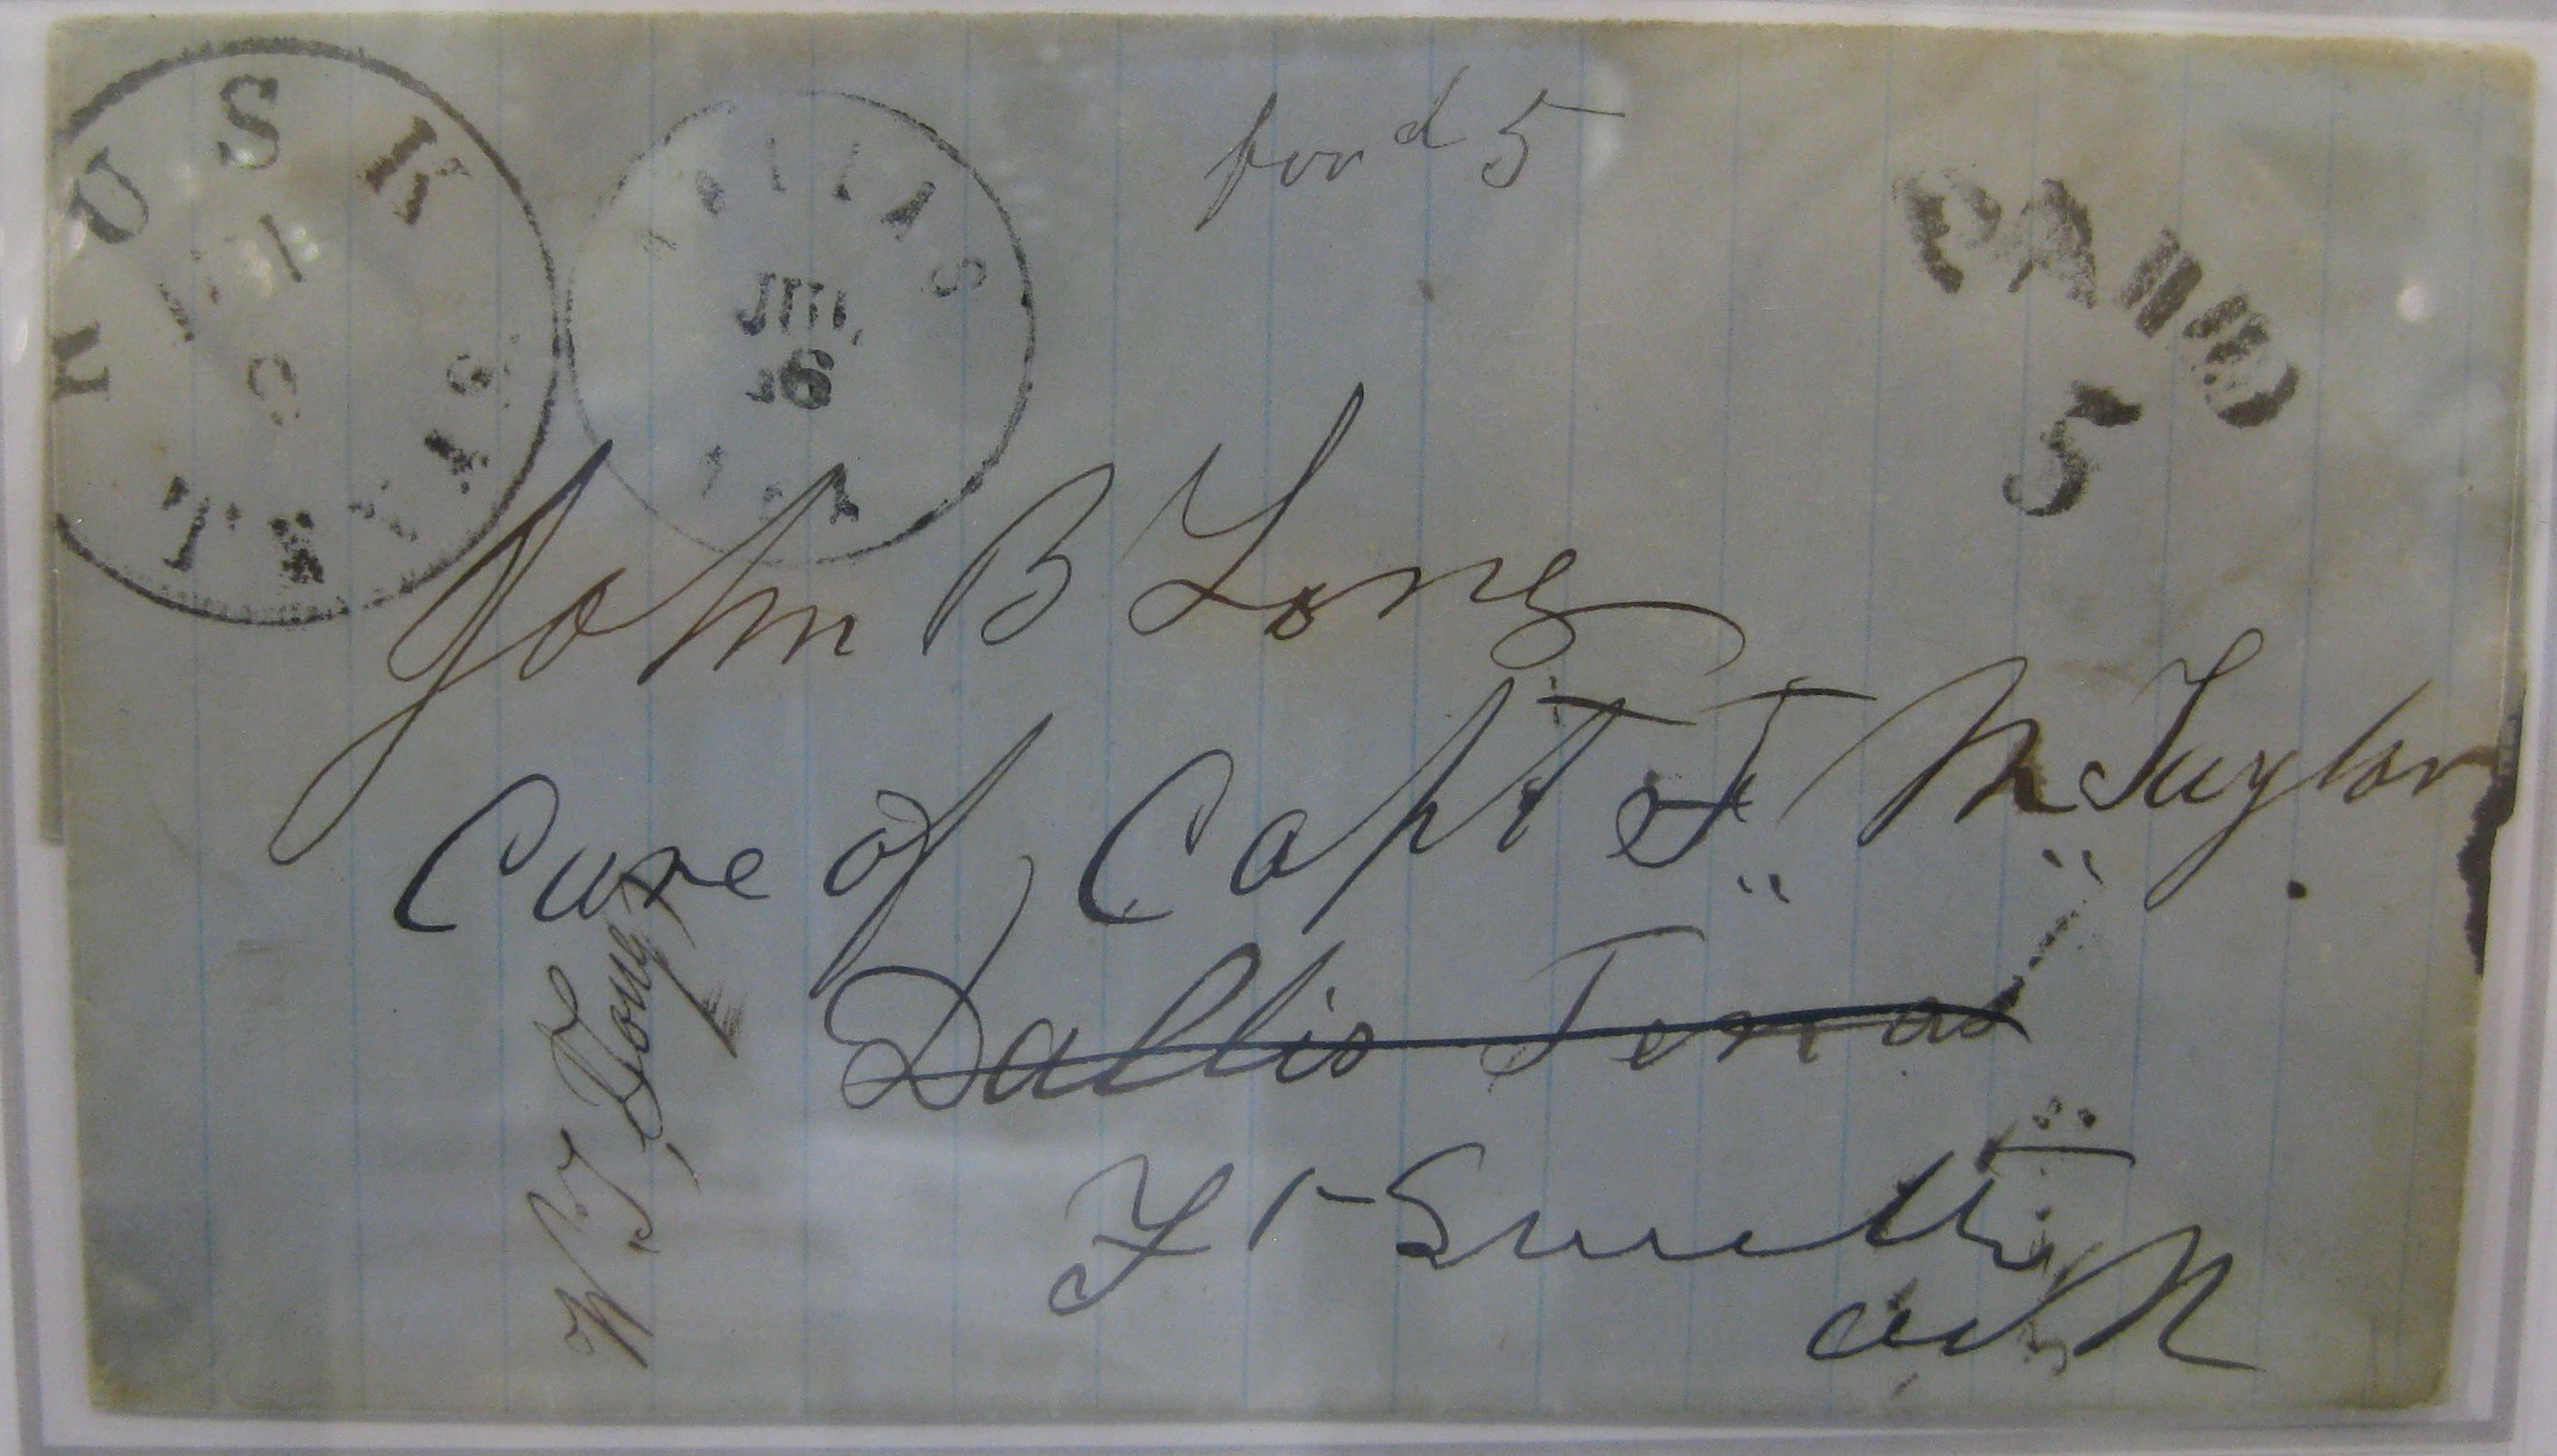 RUSK
TEXAS
DALLAS
JUL
16
TEX
forᵈ 5
PAID
5
John B Long
Care of Capt J M Taylor
Dallis Texas
Ft Smith
ark
W. J. Long